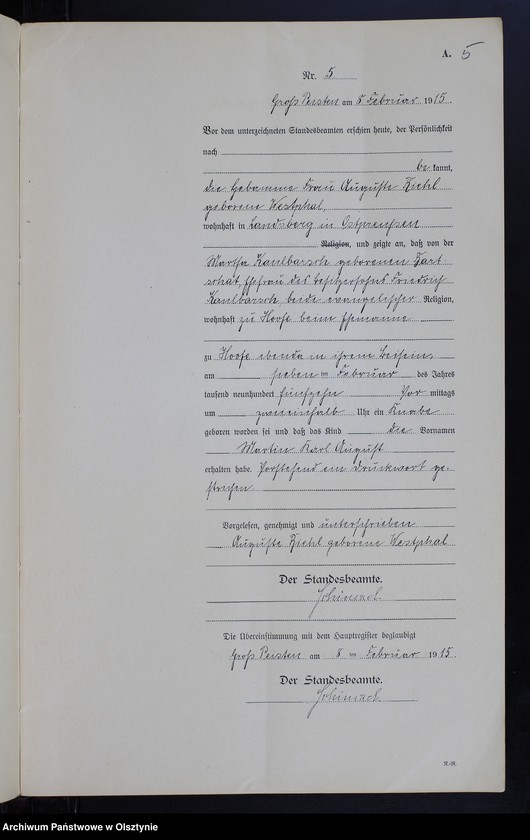 A. 5
Nr. 5
Groß Peisten am 8 Februar 1915.
Vor dem unterzeichneten Standesbeamten erschien heute, der Persönlichkeit
nach
be kannt,
die Hebamme Frau Auguste Ziehl
geborene Westphal,
wohnhaft in Landsberg in Ostpreußen
Religion, und zeigte an, daß von der
Martha Kaulbarsch geborenen
Ehefrau des Besitzersohns Friedrich
Kaulbarsch, beide evangelischer Religion,
wohnhaft zu Hoofe beim Ehemanne
zu Hoofe ebenda in ihrem Beisein,
am sieben ten Februar des Jahres
tausend neunhundert fünfzehn Vor mittags
um zweieinhalb Uhr ein Knabe
geboren worden sei und daß das Kind die Vornamen
Martin Karl August
erhalten habe. Vorstehend ein Druckwort ge-
strichen
Vorgelesen, genehmigt und unterschrieben
Auguste Ziehl geborene Westphal
Der Standesbeamte.
Die Übereinstimmung mit dem Hauptregister beglaubigt
Groß Peisten am 8 ten Februar 1915.
Der Standesbeamte.
Archiwum Państwowe w Olsztynie